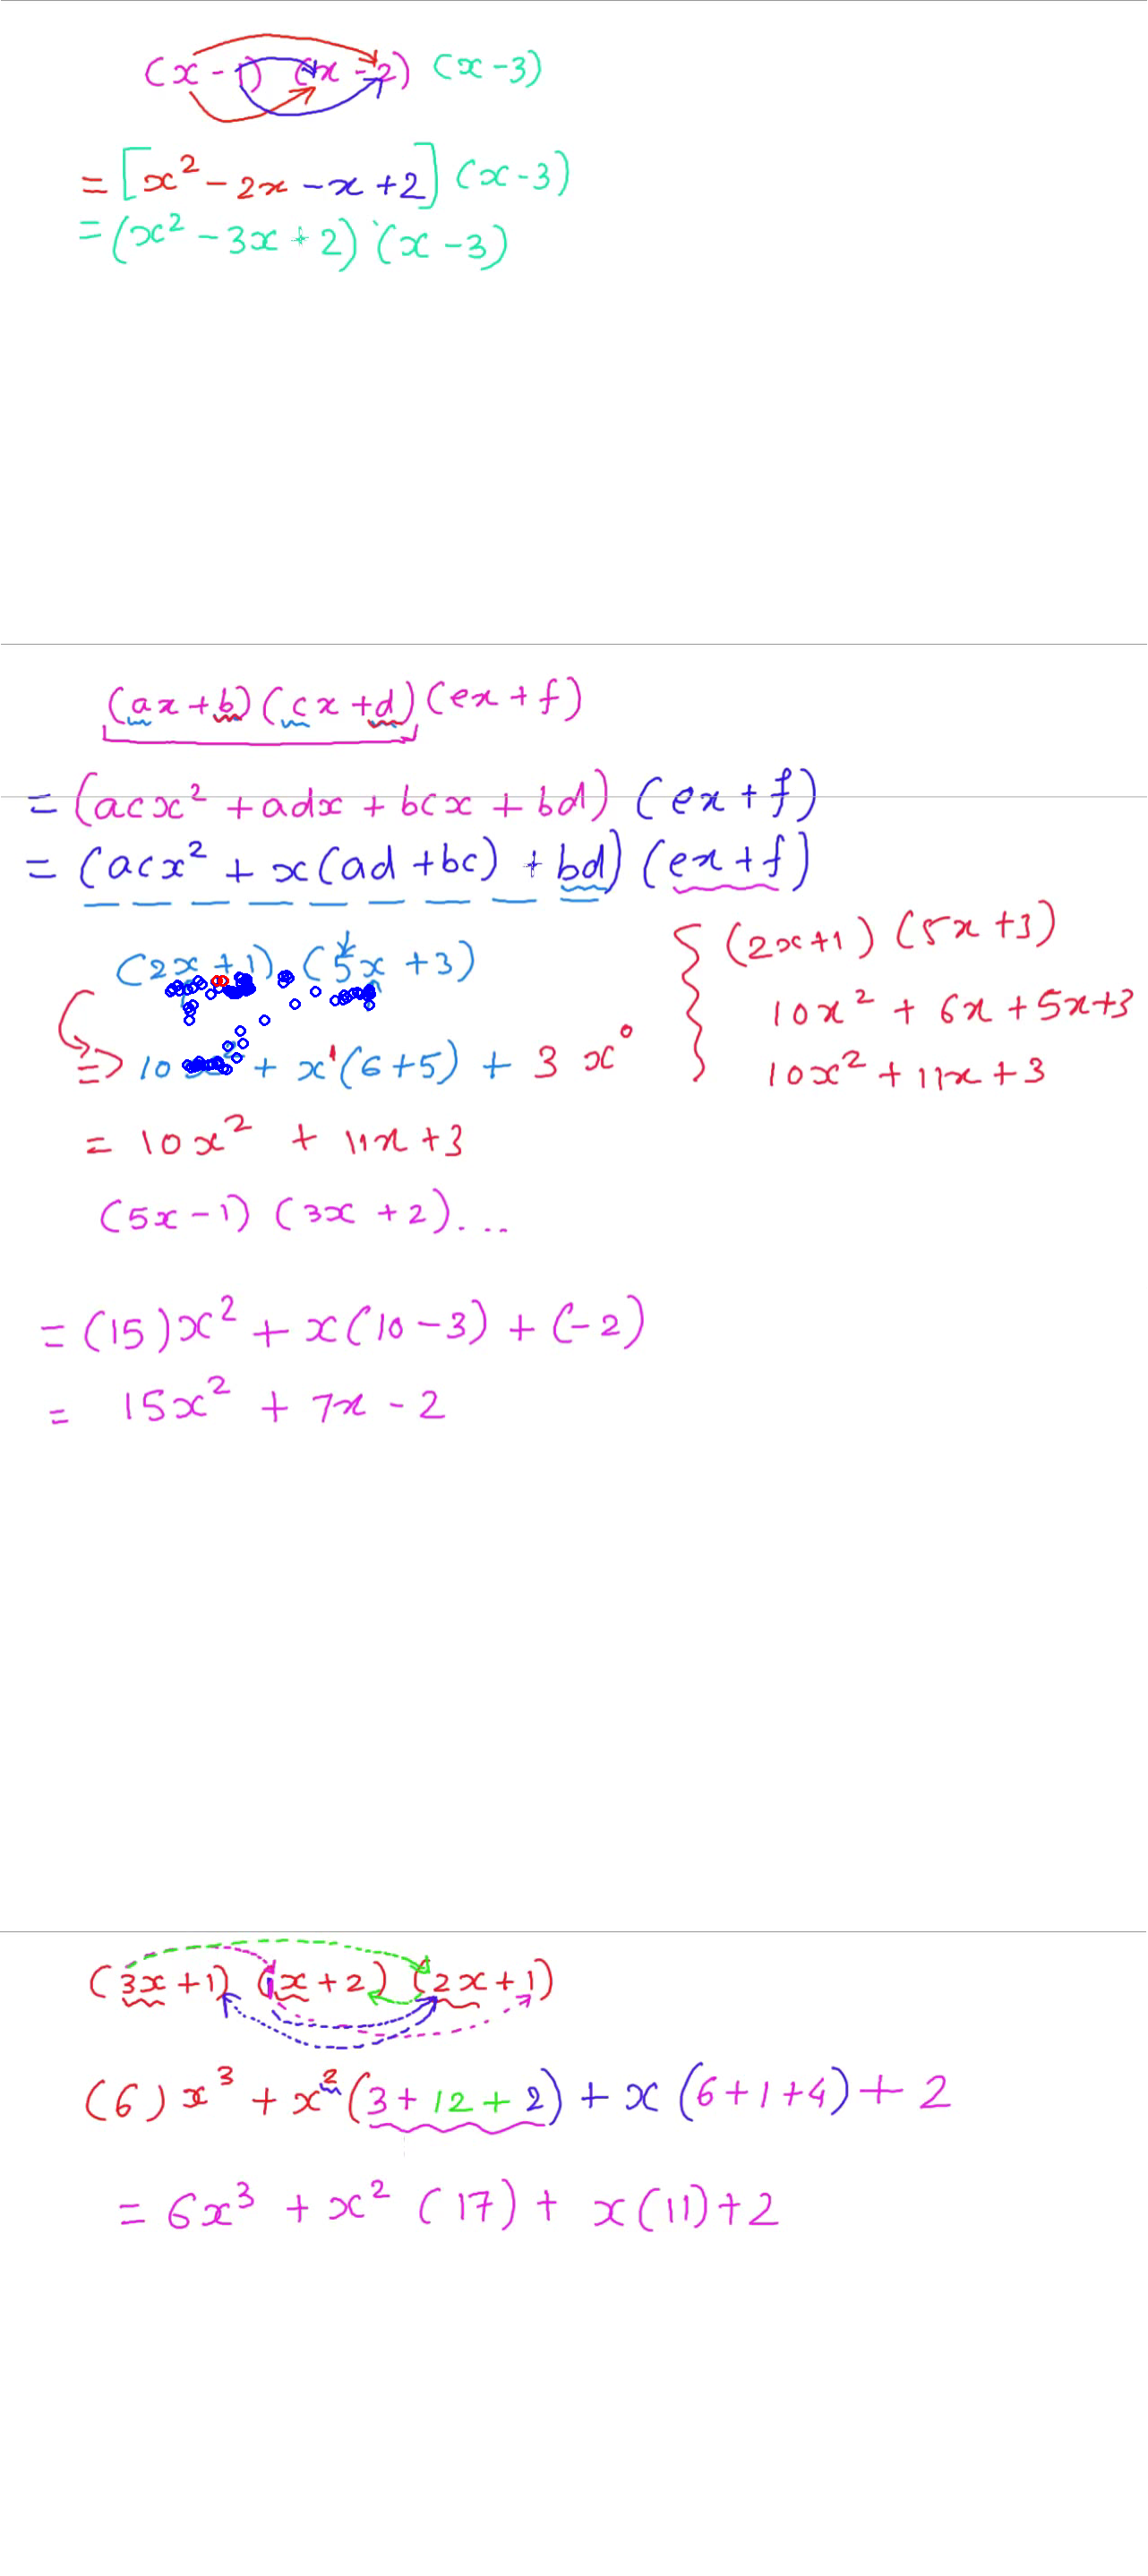 (x - 1) (x - 2) (x - 3)
= [x² - 2x - x + 2] (x - 3)
= (x² - 3x + 2) (x - 3)
(ax + b) (cx + d) (ex + f)
= (acx² + adx + bcx + bd) (ex + f)
= (acx² + x(ad + bc) + bd) (ex + f)
(2x + 1) (5x + 3)
=> 10x² + x¹(6 + 5) + 3 x⁰
= 10x² + 11x + 3
{ (2x + 1) (5x + 3)
10x² + 6x + 5x + 3
10x² + 11x + 3
(5x - 1) (3x + 2)...
= (15)x² + x(10 - 3) + (-2)
= 15x² + 7x - 2
(3x + 1) (x + 2) (2x + 1)
(6) x³ + x² (3 + 12 + 2) + x (6 + 1 + 4) + 2
= 6x³ + x² (17) + x(11) + 2